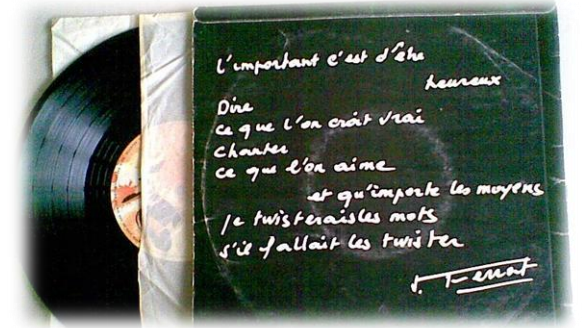 L'important c'est d'être
heureux
Dire
ce que l'on croit vrai
Chanter
ce que l'on aime
et qu'importe les moyens
je twisterais les mots
s'il fallait les twister
J. Ferrat